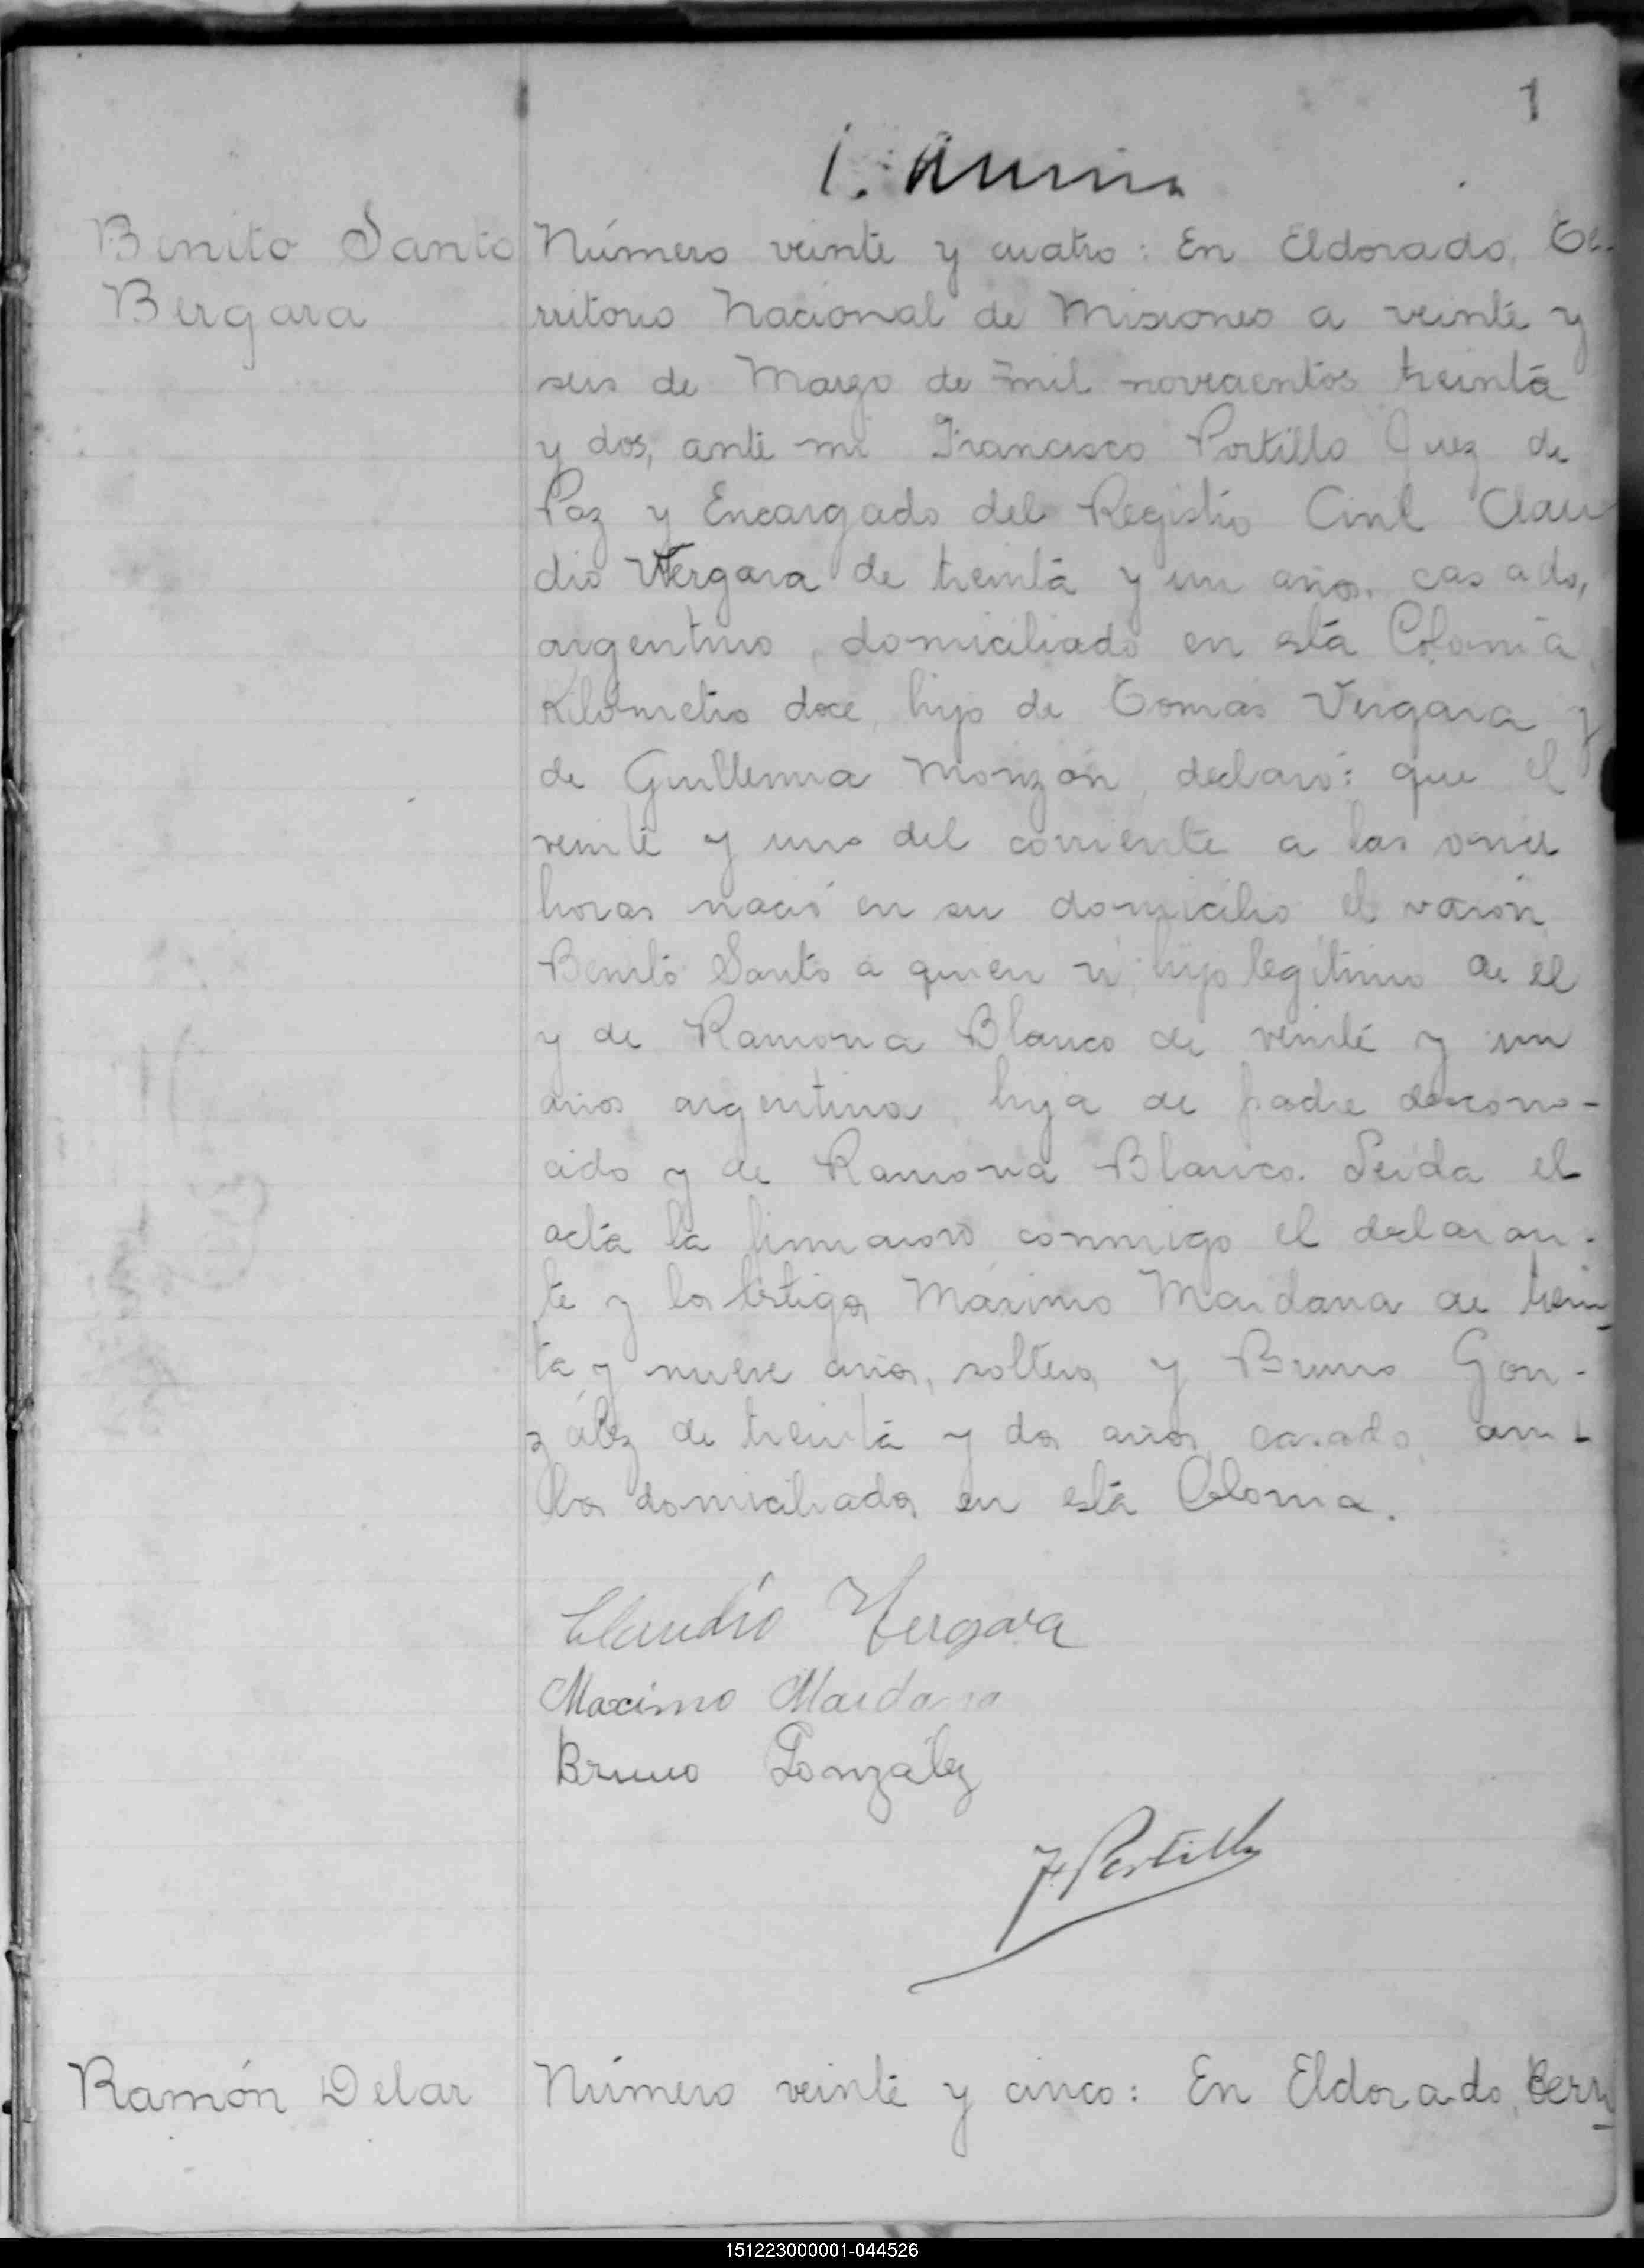 1
Benito Santo
Bergara
Número veinte y cuatro: En Eldorado, Te-
rritorio Nacional de Misiones a veinte y
seis de Marzo de mil novecientos treinta
y dos, ante mi Francisco Portillo Juez de
Paz y Encargado del Registro Civil Clau
dio Vergara de treinta y un años, casado,
argentino, domiciliado en esta Colonia,
Kilómetro doce, hijo de Tomas Vergara y
de Guillerma Monzón, declaró: que el
veinte y uno del corriente a las once
horas nació en su domicilio el varón
Benito Santo a quien vi, hijo legítimo de el
y de Ramona Blanco de veinte y un
años argentina, hija de padre descono-
cido y de Ramona Blanco. Leida el
acta la firmaron conmigo el declaran-
te y los testigos Máximo Maidana de trein
ta y nueve años, soltero, y Bruno Gon-
zález de treinta y dos años casado, am-
bos domiciliados en esta Colonia.
Claudio Vergara
Maximo Maidana
Bruno González
F. Portillo
Ramón Delar
Número veinte y cinco: En Eldorado, Terri
151223000001-044526